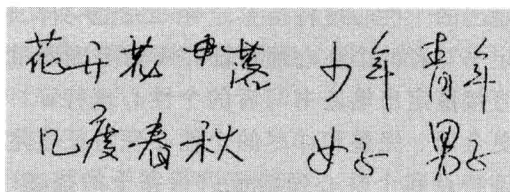 花开花落 少年青年
几度春秋 女子男子